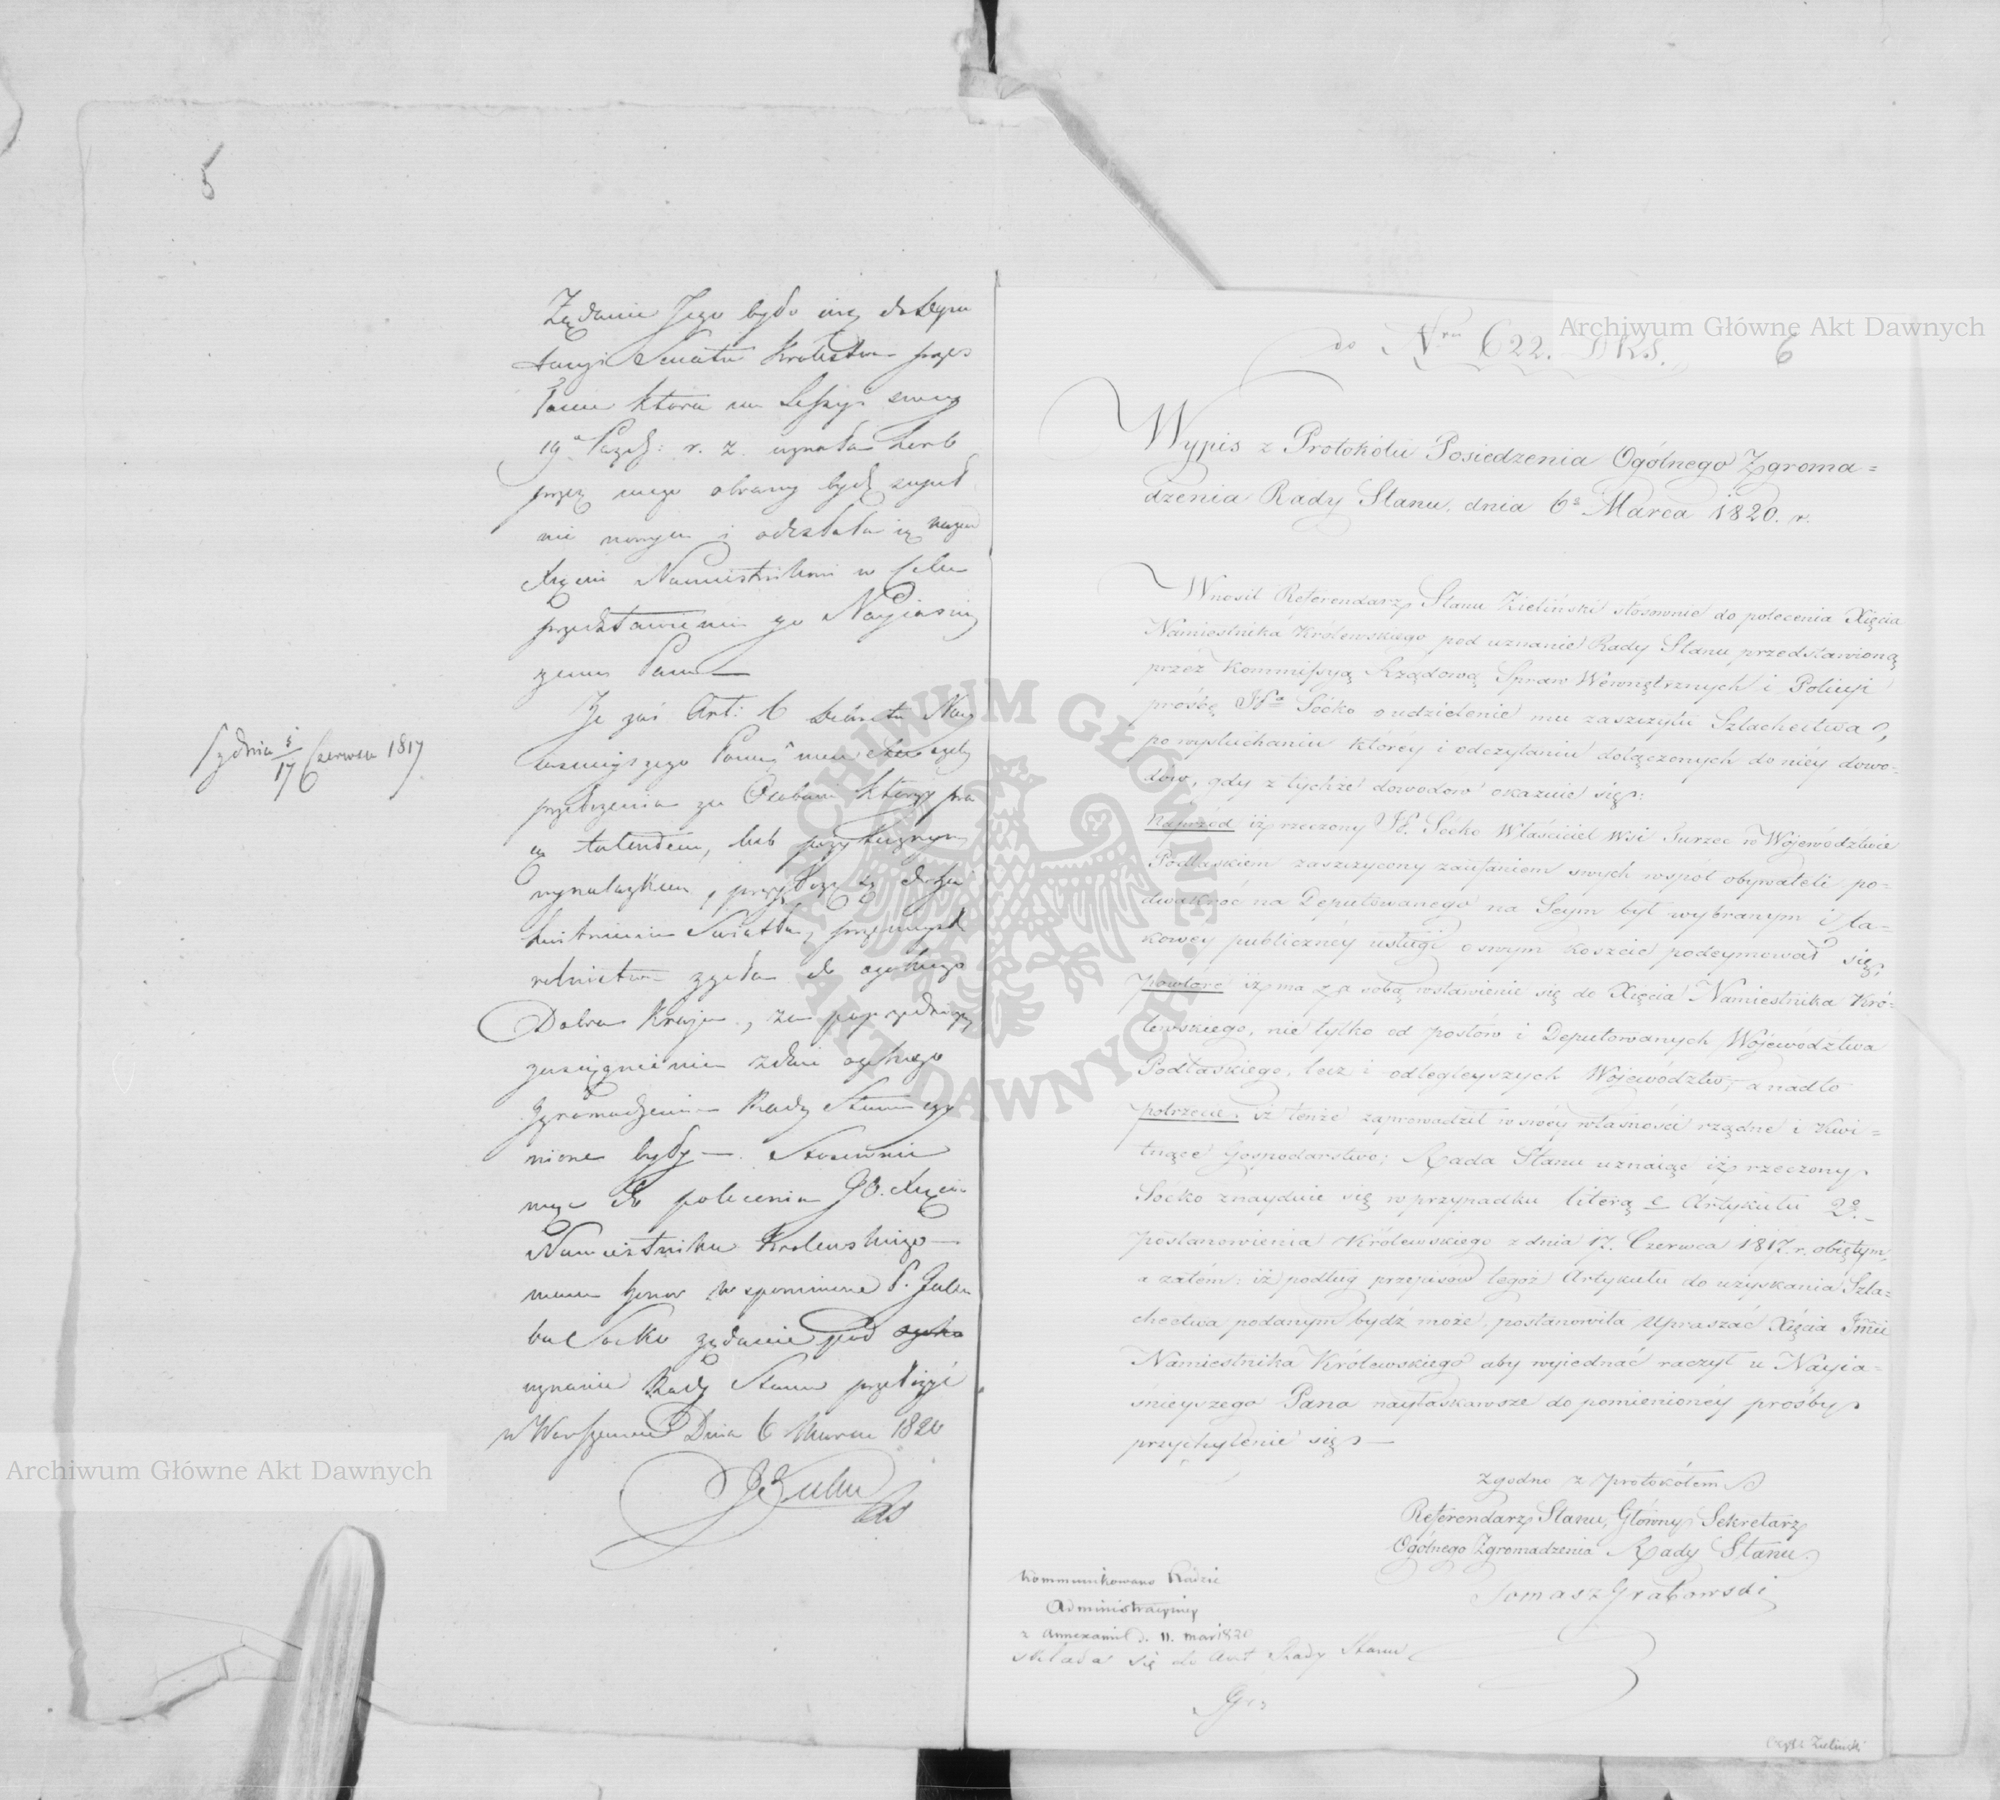 5
Żądanie Jego było iuż do Depu
tacyi Senatu Królestwa przes
łane która na Sessyi swey
19ª Paźdź: r. z. uznała herb
przez niego obrany bydź zupeł
nie nowym i odesłała ią nazad
Xięciu Namiestnikowi w Celu
przedstawienia go Nayiaśniey
szemu Panu —
Że zaś Art: 6 Dekretu Nay
iaśnieyszego Pana
z dnia 5/17 Czerwca 1817
przełożenia za Osobami które
talentem, lub pożytecznym
wynalazkiem,
Światła, przemysłu
rolnictwa do ogólnego
Dobra Kraju, za poprzedniczym
zasiągnieniem zdań ogólnego
Zgromadzenia Rady Stanu czy
nione były — Stosownie
więc do polecenia JO. Xięcia
Namiestnika Królewskiego —
mam honor wspomnione P. Jaku
ba Soćko żądanie pod
uznanie Rady Stanu przełożyć
w Warszawie Dnia 6 Marca 1820
do Nru 622. DRS.
6
Wypis z Protokółu Posiedzenia Ogólnego Zgroma=
dzenia Rady Stanu, dnia 6º Marca 1820. r.
Wnosił Referendarz Stanu Zieliński stósownie do polecenia Xięcia
Namiestnika Królewskiego pod uznanie Rady Stanu przedstawioną
przez Kommissyą Rządową Spraw Wewnętrznych i Policyi
prośbę Wº Soćko o udzielenie mu zaszczytu Szlachectwa,
po wysłuchaniu którey i odczytaniu dołączonych do niéy dowo=
dów, gdy z tychże dowodów okazuie się:
Naprzód iż rzeczony W. Soćko Właściciel Wsi Turzec w Województwie
Podlaskiem zaszczycony zaufaniem swych współ obywateli po=
dwakróć na Deputowanego na Seym był wybranym i ta=
kowey publiczney usługi o swym koszcie podeymował się,
Powtóre iż ma za sobą wstawienie się do Xięcia Namiestnika Kró=
lewskiego, nie tylko od posłów i Deputowanych Województwa
Podlaskiego, lecz i odlegleyszych Województw, a nadto
potrzecie. iż tenże zaprowadził w swéy własności rządne i Kwi=
tnące Gospodarstwo; Rada Stanu uznaiąc iż rzeczony
Soćko znayduie się w przypadku literą c Artykułu 2º.
postanowienia Królewskiego z dnia 17. Czerwca 1817. r. obiętym,
a zatém: iż podług przepisów tegóż Artykułu do uzyskania Szla=
chectwa podanym bydź może, postanowiła upraszać Xięcia Jmci
Namiestnika Królewskiego aby wyiednać raczył u Nayia=
śnieyszego Pana nayłaskawsze do pomienionéy prośby
przychylenie się. —
Zgodno z protokółem
Referendarz Stanu, Główny Sekretarz
Ogólnego Zgromadzenia Rady Stanu.
Tomasz Grabowski
Kommunikowano Radzie
Administracyiney
z Annexami d. 11. mar 1820
składa się do Akt Rady Stanu
Zieliński
Archiwum Główne Akt Dawnych
Archiwum Główne Akt Dawnych
ARCHIWUM GŁÓWNE AKT DAWNYCH